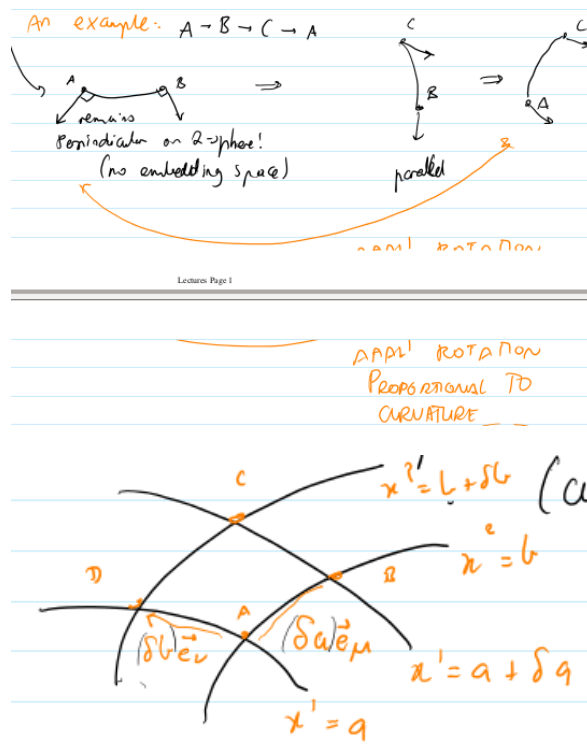 An example: A → B → C → A
C
C
A
B
B
A
⇒
⇒
remains
perpindicular on 2-sphere!
(no embedding space)
parallel
ROTATION
Lectures Page 1
ROTATION
PROPORTIONAL TO
CURVATURE
C
x²' = b + δb
(a
x² = b
D
B
A
(δb)e⃗ᵥ
(δa)e⃗μ
x' = a + δa
x' = a